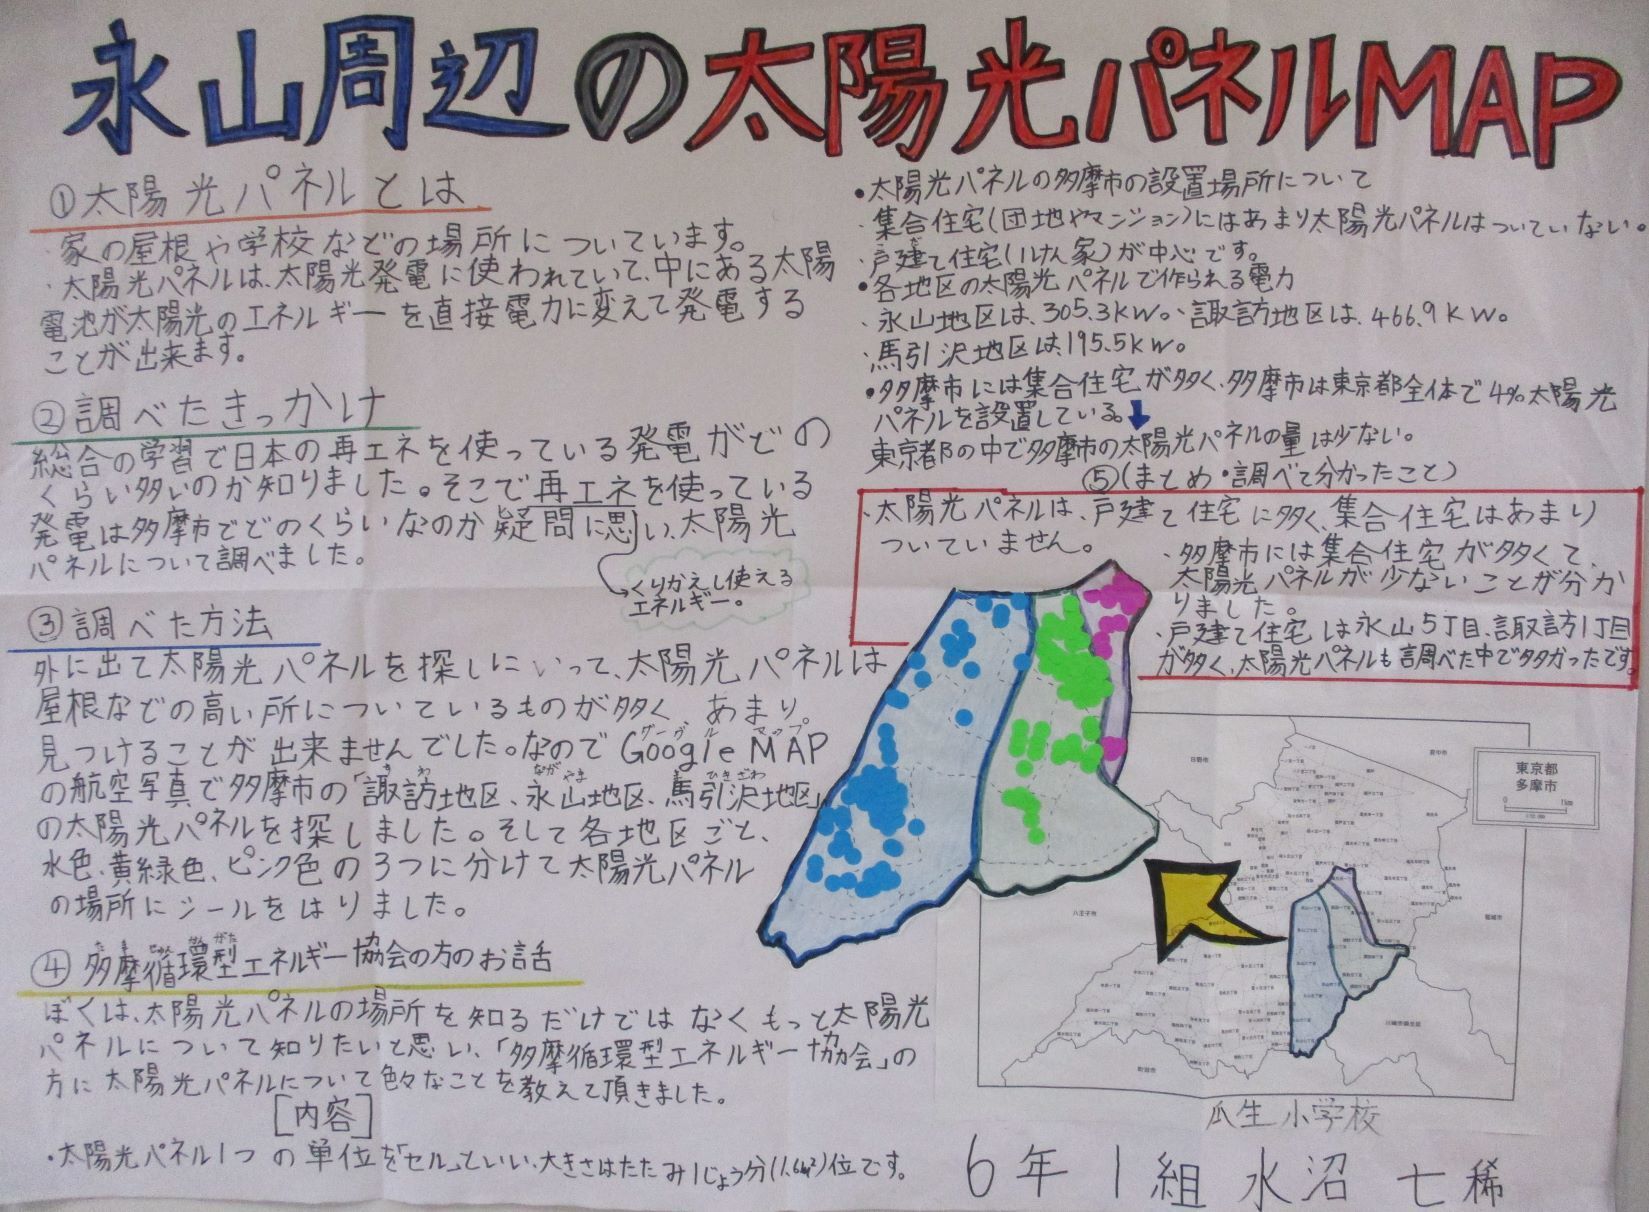 永山周辺の太陽光パネルMAP
①太陽光パネルとは
・家の屋根や学校などの場所についています。
・太陽光パネルは、太陽光発電に使われていて、中にある太陽
電池が太陽光のエネルギーを直接電力に変えて発電する
ことが出来ます。
②調べたきっかけ
総合の学習で日本の再エネを使っている発電がどの
くらい多いのか知りました。そこで再エネを使っている
発電は多摩市でどのくらいなのか疑問に思い、太陽光
パネルについて調べました。
くりかえし使える
エネルギー。
③調べた方法
外に出て太陽光パネルを探しにいって、太陽光パネルは
屋根などの高い所についているものが多く、あまり
見つけることが出来ませんでした。なのでGoogle MAP
グーグル マップ
の航空写真で多摩市の「諏訪地区、永山地区、馬引沢地区」
すわ ながやま ひきざわ
の太陽光パネルを探しました。そして各地区ごと、
水色、黄緑色、ピンク色の3つに分けて太陽光パネル
の場所にシールをはりました。
④多摩循環型エネルギー協会の方のお話
ぼくは、太陽光パネルの場所を知るだけではなくもっと太陽光
パネルについて知りたいと思い、「多摩循環型エネルギー協会」の
方に太陽光パネルについて色々なことを教えて頂きました。
[内容]
・太陽光パネル1つの単位を「セル」といい、大きさはたたみ1じょう分(1.6m²)位です。
・太陽光パネルの多摩市の設置場所について
・集合住宅(団地やマンション)にはあまり太陽光パネルはついていない。
・戸建て住宅(1けん家)が中心です。
・各地区の太陽光パネルで作られる電力
・永山地区は、305.3kw。・諏訪地区は、466.9kw。
・馬引沢地区は、195.5kw。
・多摩市には集合住宅が多く、多摩市は東京都全体で4%太陽光
パネルを設置している。
東京都の中で多摩市の太陽光パネルの量は少ない。
⑤(まとめ・調べて分かったこと)
・太陽光パネルは、戸建て住宅に多く、集合住宅はあまり
ついていません。
・多摩市には集合住宅が多くて、
太陽光パネルが少ないことが分か
りました。
・戸建て住宅は永山5丁目、諏訪1丁目
が多く、太陽光パネルも調べた中で多かったです。
東京都
多摩市
0 1km
日野市
府中市
八王子市
稲城市
町田市
瓜生小学校
6年1組 水沼 七稀